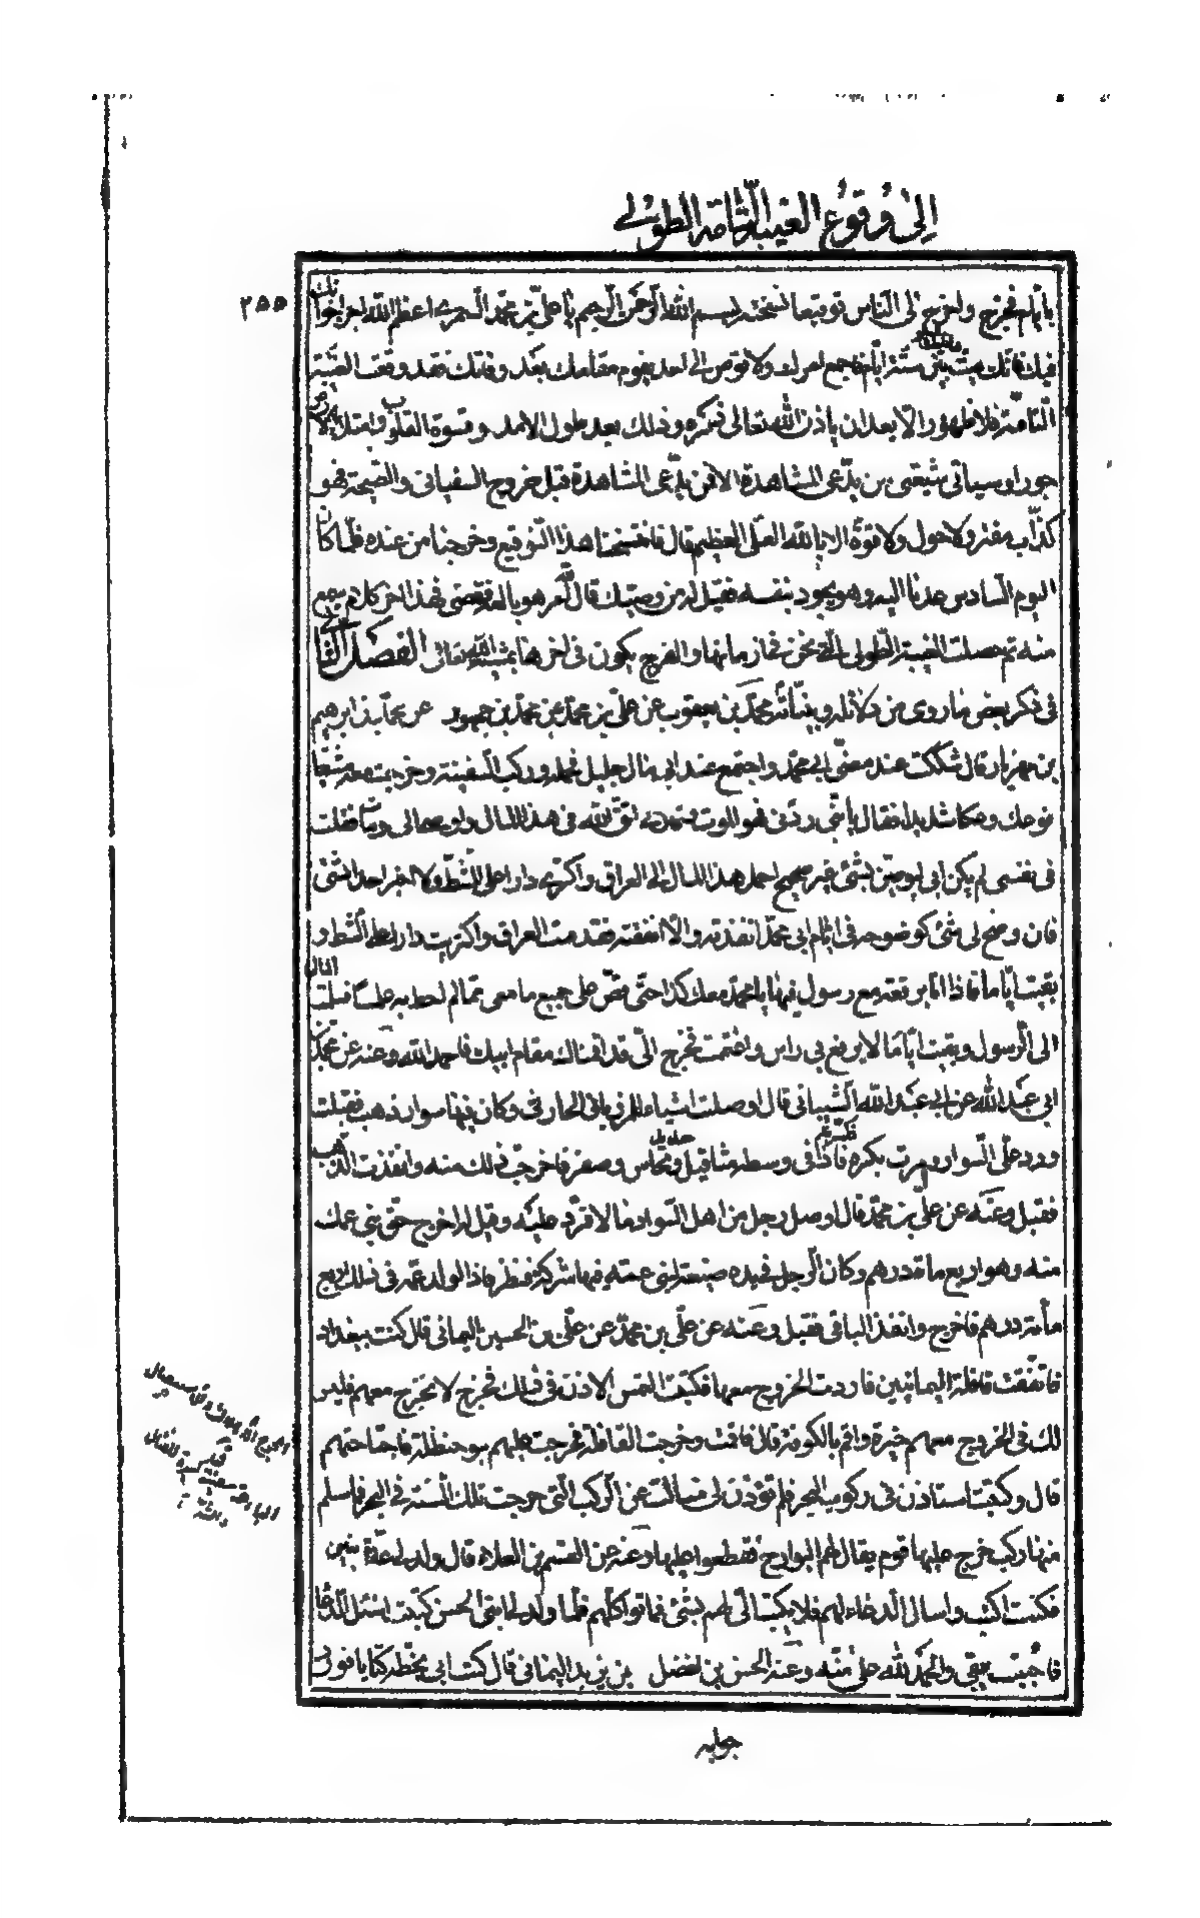 إلى وقوع الغيبة التامة الطولى
٢٥٥
بايام فخرج واخرج الى الناس توقيعا نسخته بسم الله الرحمن الرحيم يا على بن محمد السمرى اعظم الله اجر اخوانك
فيك فانك ميت ما بينك وبين ستة ايام فاجمع امرك ولا توص الى احد يقوم مقامك بعد وفاتك فقد وقعت الغيبة
التامة فلا ظهور الا بعد ان ياذن الله تعالى ذكره وذلك بعد طول الامد وقسوة القلوب وامتلاء الارض
جورا وسياتى شيعتى من يدعى المشاهدة الا فمن يدعى المشاهدة قبل خروج السفيانى والصيحة فهو
كذاب مفتر ولا حول ولا قوة الا بالله العلى العظيم قال فانتسخنا هذا التوقيع وخرجنا من عنده فلما كان
اليوم السادس عدنا اليه وهو يجود بنفسه فقيل له من وصيك قال لله امر هو بالغه فقضى فهذا اخر كلام سمع
منه ثم حصلت الغيبة الطولى التى نحن فى ازمانها والفرج يكون فى اخرها بمشية الله تعالى الفصل الثالث
فى ذكر بعض ما روى من دلائله وبيناته محمد بن يعقوب عن على بن محمد عن محمد بن حمويه عن محمد بن ابرهيم
بن مهزيار قال شككت عند مضى ابى محمد واجتمع عند ابى مال جليل فحمله وركب السفينة وخرجت معه مشيعا
فوعك وعكا شديدا فقال يا بنى ردنى فهو الموت ثم قال اتق الله فى هذا المال واوصى الى ومات فقلت
فى نفسى لم يكن ابى ليوصى بشئ غير صحيح احمل هذا المال الى العراق واكترى دارا على الشط ولا اخبر احدا بشئ
فان وضح لى شئ كوضوحه فى ايام ابى محمد انفذته والا انفقته فقدمت العراق واكتريت دارا على الشط و
بقيت اياما فاذا انا برقعة مع رسول فيها يا محمد معك كذا حتى قص على جميع ما معى مما لم احط به علما فسلمت المال
الى الرسول وبقيت اياما لا يرفع بى راس واغتممت فخرج الى قد اقمناك مقام ابيك فاحمد الله وعنه عن محمد بن
ابى عبد الله عن ابى عبد الله الشيبانى قال اوصلت اشياء للمرزبانى الحارثى وكان فيها سوار ذهب فقبلت
ورد على السوار وامرت بكسره فكسرته فاذا فى وسطه مثاقيل حديد ونحاس وصفر فاخرجت ذلك منه وانفذت الذهب
فقبل وعنه عن على بن محمد قال اوصل رجل من اهل السواد مالا فرد عليه وقيل له اخرج حق بنى عمك
منه وهو اربع مائة درهم وكان الرجل فى يده ضيعة لبنى عمه فيها شركة فنظر فاذا لولد عمه فى ذلك اربع
مائة درهم فاخرج وانفذ الباقى فقبل وعنه عن على بن محمد عن على بن الحسين اليمانى قال كنت ببغداد
فاتفقت قافلة اليمانيين فاردت الخروج معها فكتبت التمس الاذن فى ذلك فخرج لا تخرج معهم فليس
لك فى الخروج معهم خيرة واقم بالكوفة قال فاقمت وخرجت القافلة فخرجت عليهم بنو حنظلة فاجتاحتهم
قال وكتبت استاذن فى ركوب البحر فلم تؤذن لى فسالت عن المراكب التى خرجت تلك السنة فى البحر فما سلم
منها مركب خرج عليها قوم يقال لهم البوارح فقطعوا عليها وعنه عن القسم بن العلاء قال ولد لى عدة بنين
فكنت اكتب واسال الدعاء لهم فلا يكتب الى لهم بشئ فماتوا كلهم فلما ولد لى ابنى الحسن كتبت اسئل الدعاء
فاجبت يبقى والحمد لله على منه وعنه الحسن بن الفضل بن يزيد اليمانى قال كتب ابى بخطه كتابا فورد
جوابه